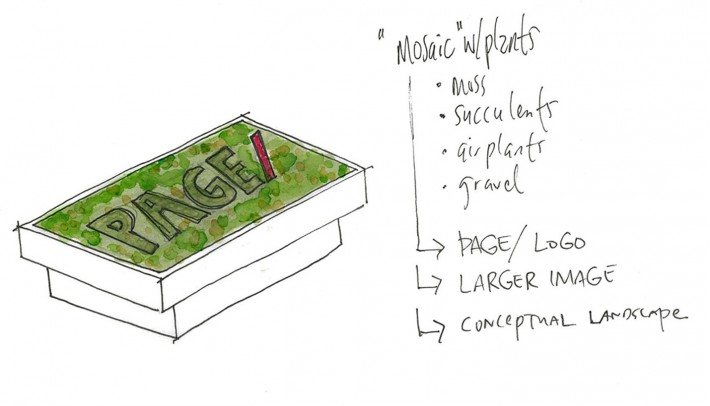 PAGE/
"Mosaic" w/plants
• moss
• succulents
• airplants
• gravel
PAGE/ LOGO
LARGER IMAGE
CONCEPTUAL LANDSCAPE